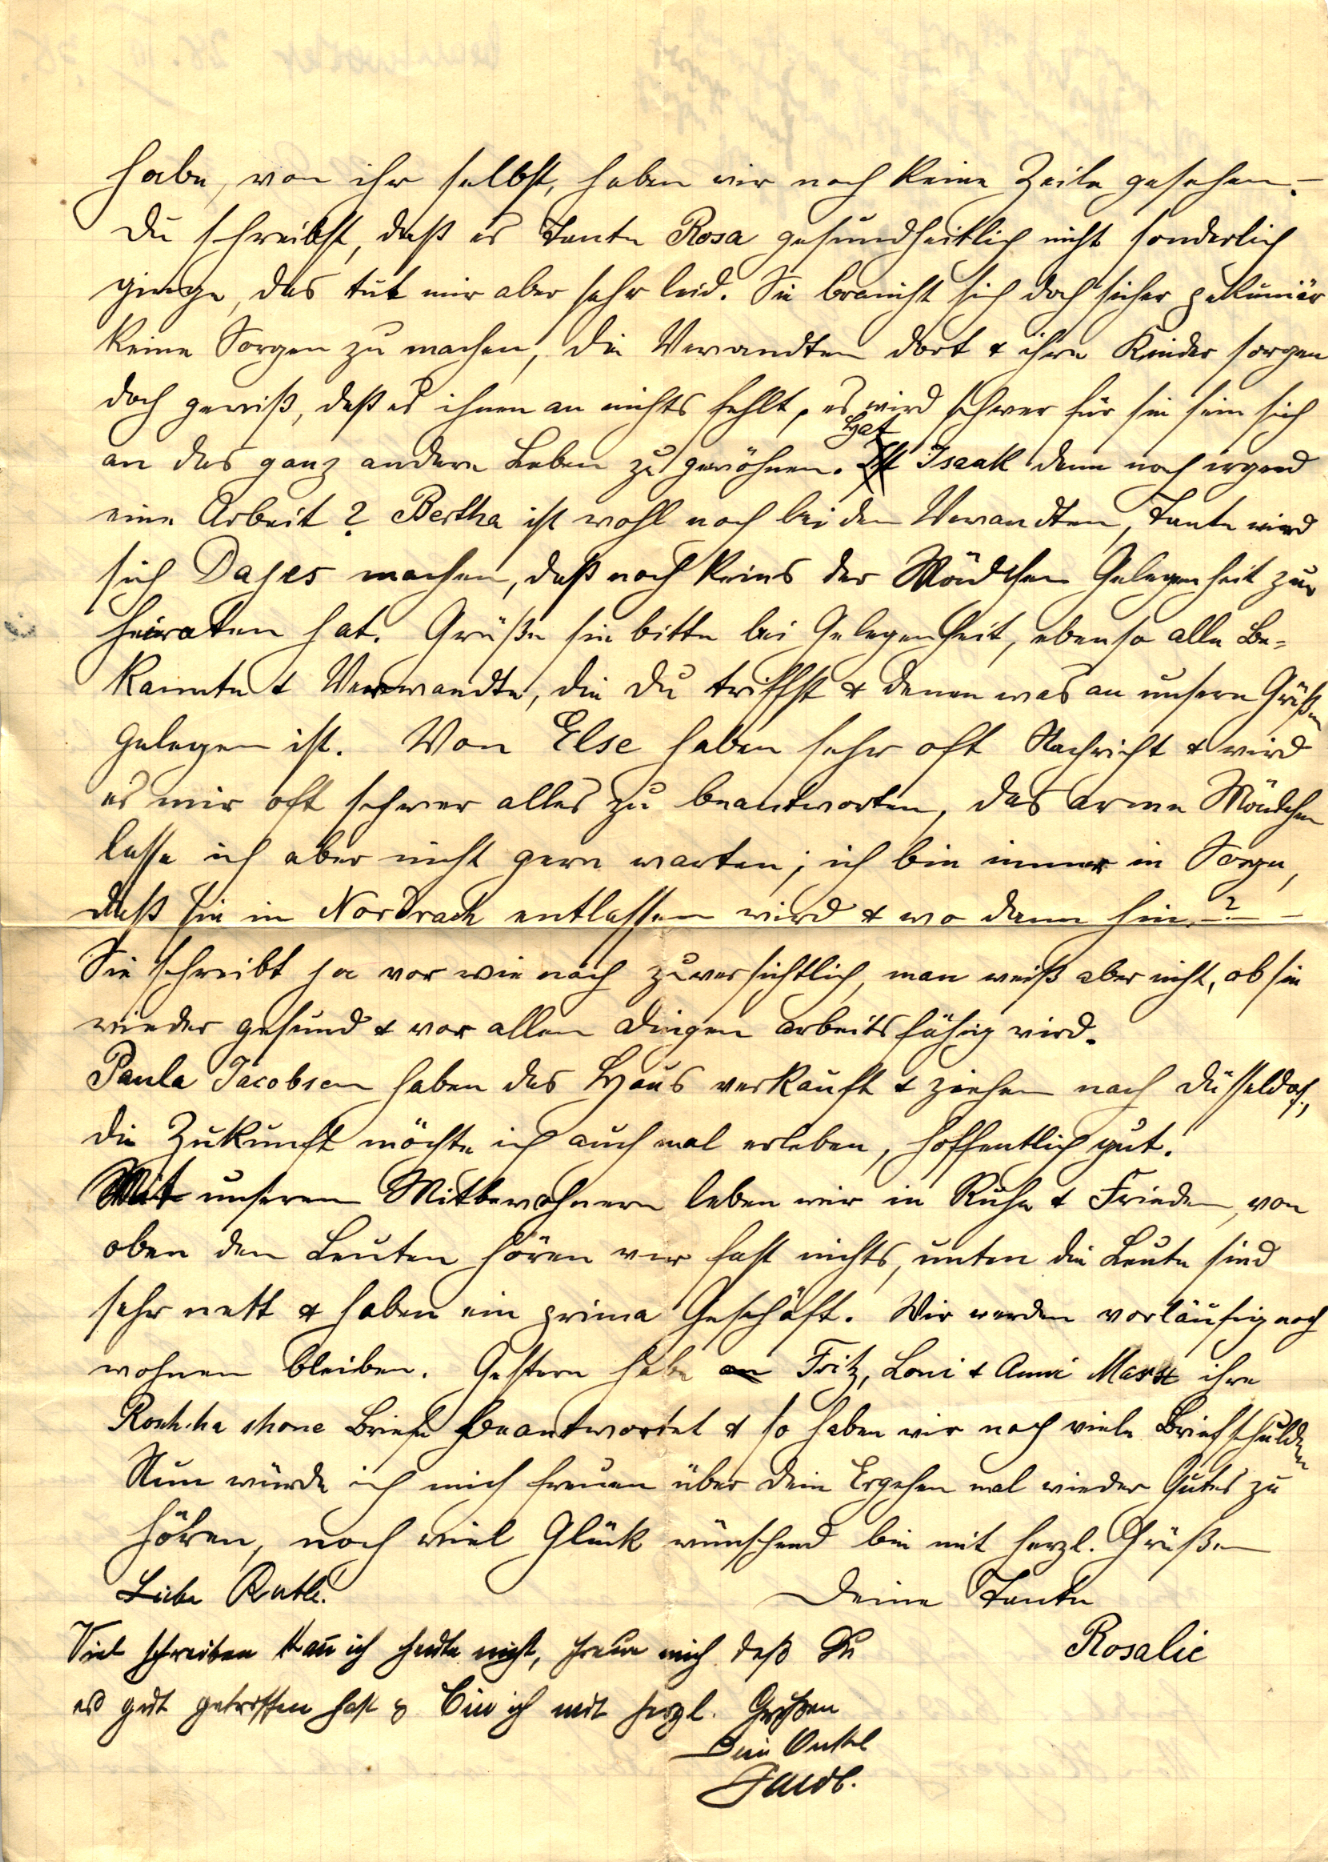 habe, von ihr selbst, haben wir noch keine Zeile gesehen. –
Du schreibst, daß es Tante Rosa gesundheitlich nicht sonderlich
ginge, das tut mir aber sehr leid. Sie braucht sich doch sicher pekuniär
keine Sorgen zu machen, die Verwandten dort & ihre Kinder sorgen
doch gewiß, daß es ihnen an nichts fehlt, es wird schwer für sie sein sich
an das ganz andere Leben zu gewöhnen. Hat Isaak denn noch irgend
eine Arbeit? Bertha ist wohl noch bei den Verwandten, Tante wird
sich Dajes machen, daß noch keins der Mädchen Gelegenheit zum
heiraten hat. Grüße sie bitte bei Gelegenheit, ebenso alle Be=
kannte & Verwandte, die Du triffst & denen was an unsern Grüßen
gelegen ist. Von Else haben sehr oft Nachricht & wird
es mir oft schwer alles zu beantworten, das arme Mädchen
lasse ich aber nicht gern warten; ich bin immer in Sorge,
daß sie in Nordrach entlassen wird & wo dann hin. ? –
Sie schreibt ja vor wie nach zuversichtlich, man weiß aber nicht, ob sie
wieder gesund & vor allen Dingen arbeitsfähig wird.
Paula Jacobsen haben das Haus verkauft & ziehen nach Düsseldorf,
die Zukunft möchte ich auch mal erleben, hoffentlich gut.
Mit unseren Mitbewohnern leben wir in Ruhe & Frieden, von
oben den Leuten hören wir fast nichts, unten die Leute sind
sehr nett & haben ein prima Geschäft. Wir werden vorläufig noch
wohnen bleiben. Gestern habe an Fritz, Loni & Anni Marx ihre
Briefe beantwortet & so haben wir noch viele Briefschulden
Nun würde ich mich freuen über dein Ergehen mal wieder Gutes zu
hören, noch viel Glück wünschend bin mit herzl. Grüßen
Liebe Ruth! Deine Tante
Rosalie
Viel schreiben kann ich heute nicht, freue mich daß Du
es gut getroffen hast & bin ich mit herzl. Grüßen
Dein Onkel
Jacob.